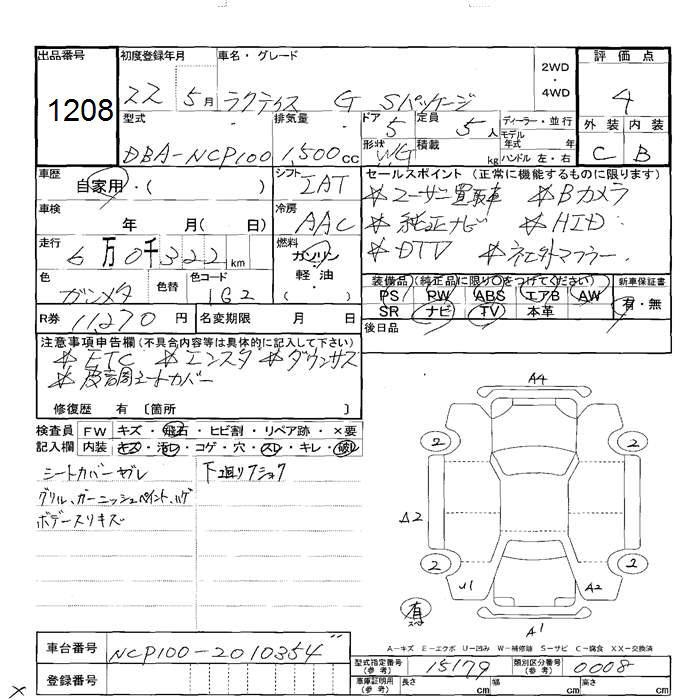 出品番号 初度登録年月 車名・グレード 2WD・4WD 評価点
1208 22 5月 ラクティス G Sパッケージ 4
型式 排気量 ドア 5 定員 5人 ディーラー・並行 外装 内装
DBA-NCP100 1,500cc 形状 WG 積載 kg モデル年式 年 ハンドル 左・右 C B
車歴 シフト セールスポイント (正常に機能するものに限ります)
自家用・( ) IAT ＊ユーザー買取車 ＊Bカメラ
車検 冷房 ＊純正ナビ ＊HID
年 月( 日) AAC ＊DTV ＊社外マフラー
走行 燃料
6万0千322km ガソリン・軽油・
色 色替 色コード 装備品 (純正品に限り○をつけてください) 新車保証書
ガンメタ 1G2 PS PW ABS エアB AW 有・無
R券 11,270円 名変期限 月 日 SR ナビ TV 本革
後日品
注意事項申告欄 (不具合内容等は具体的に記入して下さい)
＊ETC ＊エンスタ ＊ダウンサス
修復歴 有 〔箇所 〕
検査員 FW キズ・飛石・ヒビ割・リペア跡・×要
記入欄 内装 キズ・汚レ・コゲ・穴・スレ・キレ・破レ
シートカバーヤブレ 下廻リフショク
グリル、ガーニッシュペイント、ハゲ
ボデースリキズ
A4
2 2
A2
2 2
U1 A2
有
A1
A－キズ E－エクボ U－凹み W－補修跡 S－サビ C－腐食 XX－交換済
車台番号 NCP100-2010354
型式指定番号(参考) 15179 類別区分番号(参考) 0008
登録番号 車庫証明用(参考) 長さ cm 幅 cm 高さ cm